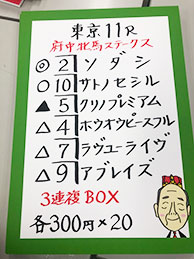 東京11R
府中牝馬ステークス
◎ 2 ソダシ
○ 10 サトノセシル
▲ 5 クリノプレミアム
△ 4 ホウオウピースフル
△ 7 ラヴユーライヴ
△ 9 アブレイズ
3連複BOX
各300円×20